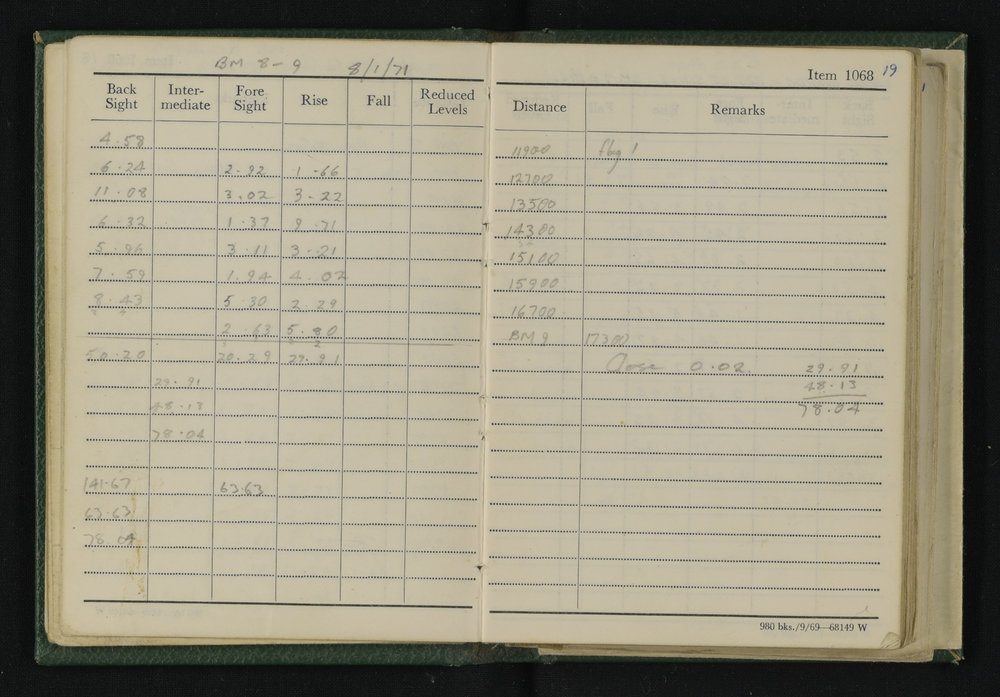 BM 8-9 8/1/71
Back Sight Inter-mediate Fore Sight Rise Fall Reduced Levels
4.58
6.24 2.92 1.66
11.08 3.02 3.22
6.32 1.37 9.71
5.96 3.11 3.21
7.59 1.94 4.02
8.43 5.30 2.29
2.63 5.80
50.20 20.29 29.91
29.91
48.13
78.04
141.67 63.63
63.63
78.04
Item 1068 19
Distance Remarks
11900 flag 1
12700
13500
14300
15100
15900
16700
BM 9 17300
Close 0.02 29.91
48.13
78.04
980 bks./9/69—68149 W